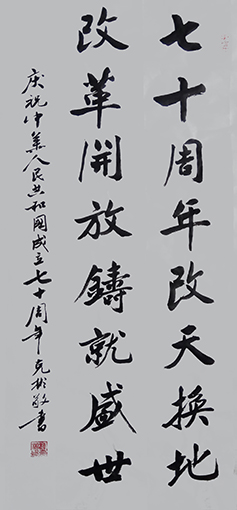 七十周年改天換地
改革開放鑄就盛世
庆祝中华人民共和國成立七十周年克彬敬書